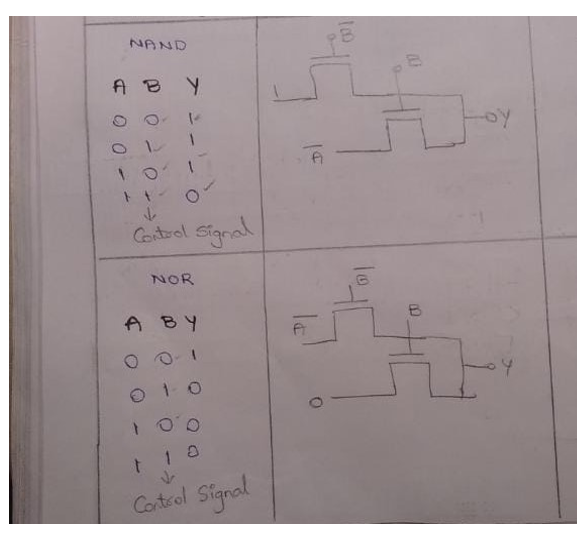 NAND
A B Y
0 0 1
0 1 1
1 0 1
1 1 0
Control Signal
B̅
1
B
A̅
Y
NOR
A B Y
0 0 1
0 1 0
1 0 0
1 1 0
Control Signal
B̅
A̅
B
0
Y